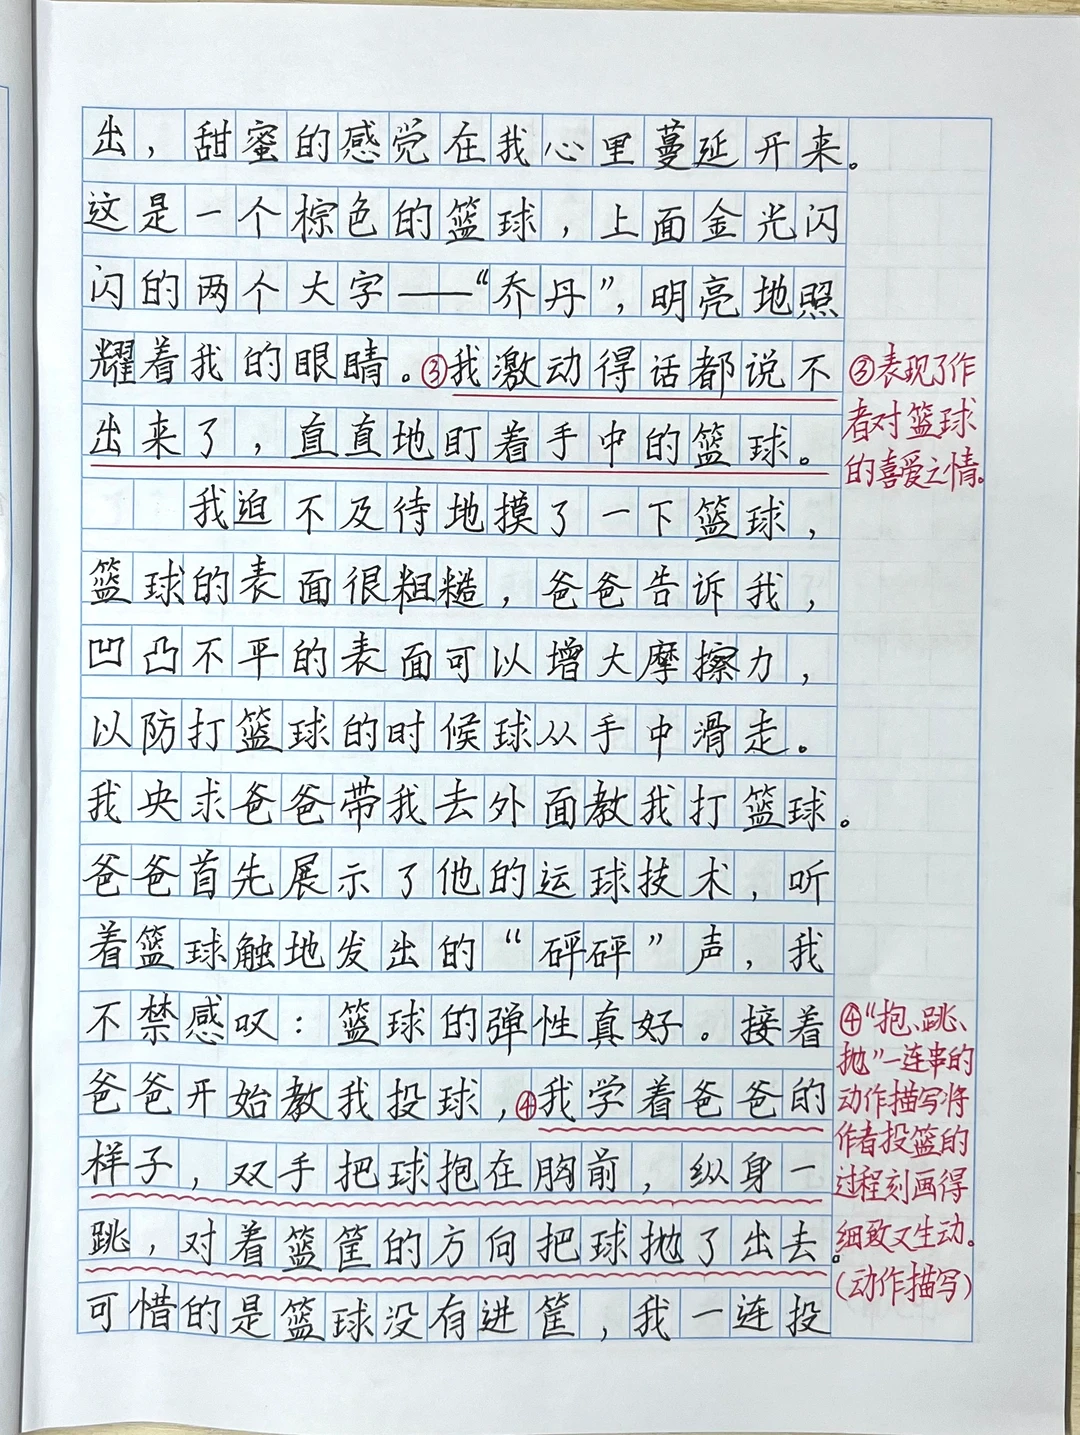 出，甜蜜的感觉在我心里蔓延开来。
这是一个棕色的篮球，上面金光闪
闪的两个大字——“乔丹”，明亮地照
耀着我的眼睛。③我激动得话都说不
出来了，直直地盯着手中的篮球。
我迫不及待地摸了一下篮球，
篮球的表面很粗糙，爸爸告诉我，
凹凸不平的表面可以增大摩擦力，
以防打篮球的时候球从手中滑走。
我央求爸爸带我去外面教我打篮球。
爸爸首先展示了他的运球技术，听
着篮球触地发出的“砰砰”声，我
不禁感叹：篮球的弹性真好。接着
爸爸开始教我投球，④我学着爸爸的
样子，双手把球抱在胸前，纵身一
跳，对着篮筐的方向把球抛了出去。
可惜的是篮球没有进筐，我一连投
③表现了作
者对篮球
的喜爱之情。
④“抱、跳、
抛”一连串的
动作描写将
作者投篮的
过程刻画得
细致又生动。
（动作描写）